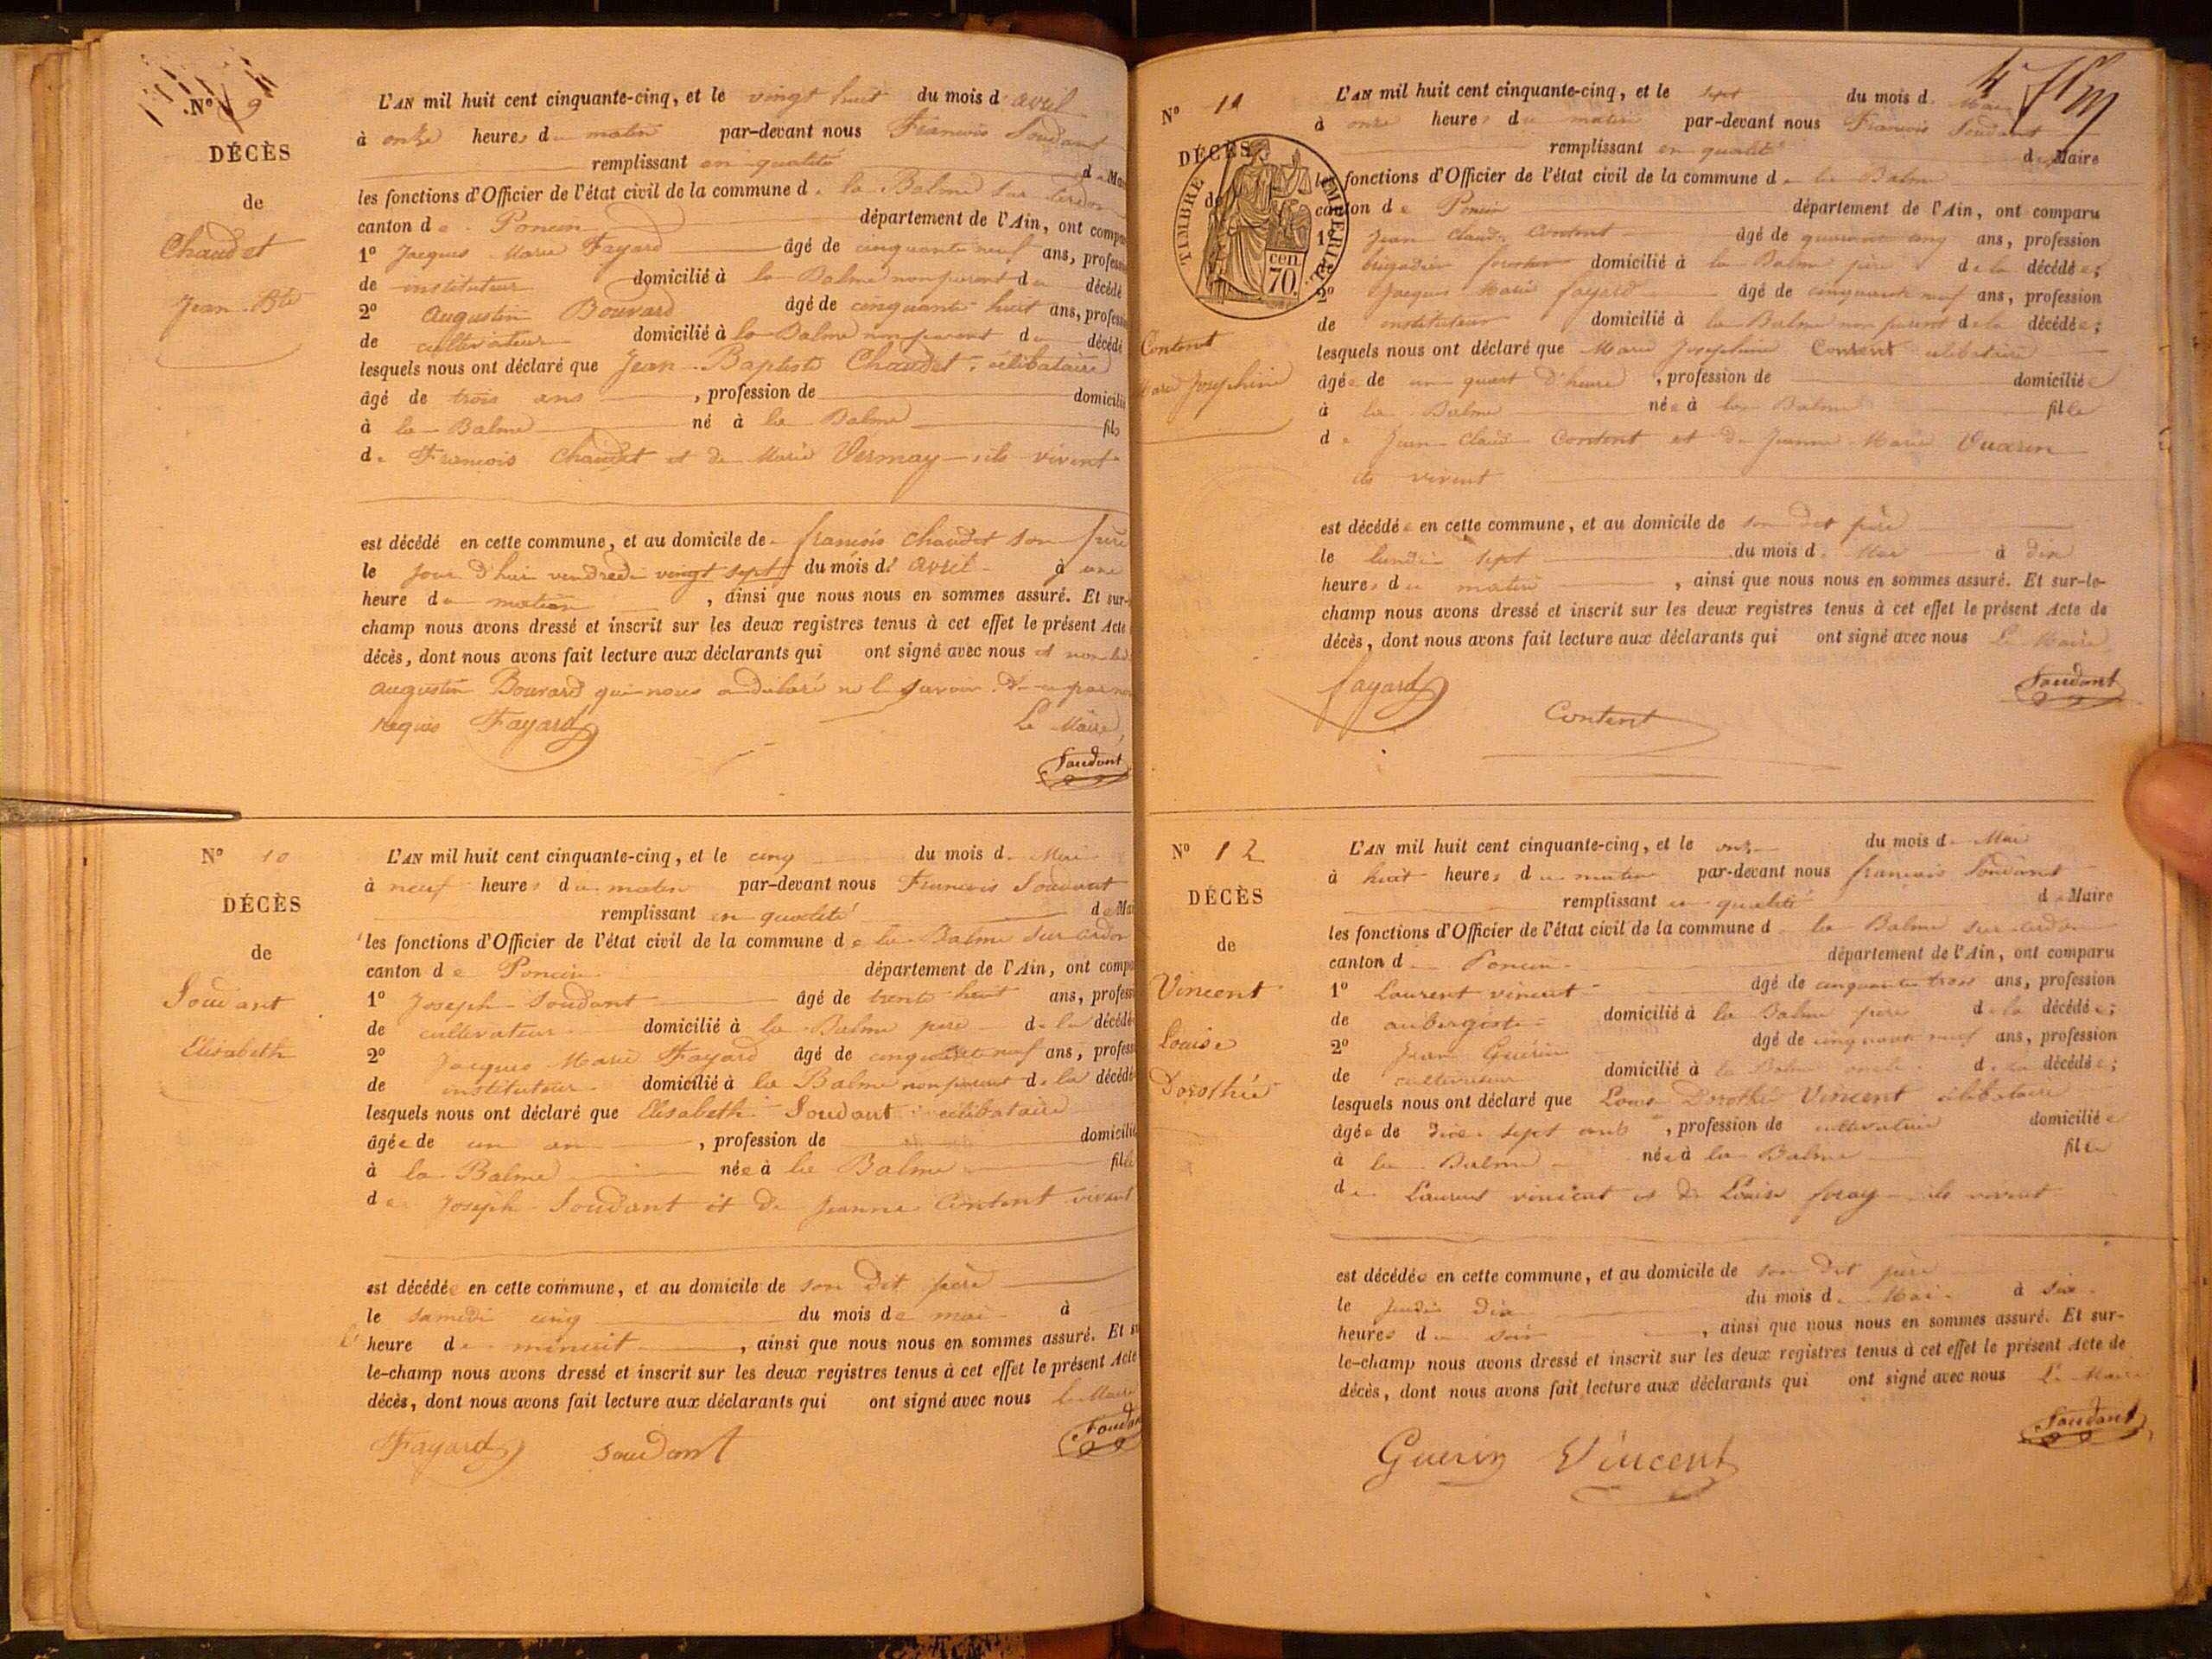 N° 9
DÉCÈS
de
Chaudet
Jean Bte
L'AN mil huit cent cinquante-cinq, et le vingt huit du mois d'avril
à onze heures du matin par-devant nous François Soudant
remplissant en qualité de Ma
les fonctions d'Officier de l'état civil de la commune de la Balme sur Cerdon
canton de Poncin département de l'Ain, ont compa
1° Jacques Marie Fayard âgé de cinquante neuf ans, profession
de instituteur domicilié à la Balme non parent du décédé
2° Augustin Bouvard âgé de cinquante huit ans, profession
de cultivateur domicilié à la Balme non parent du décédé
lesquels nous ont déclaré que Jean-Baptiste Chaudet, célibataire
âgé de trois ans , profession de domicilié
à la Balme né à la Balme fils
de François Chaudet et de Marie Vermay ils vivent
est décédé en cette commune, et au domicile de françois Chaudet son père
le jour d'hui vendredi vingt sept du mois d'avril à une
heure du matin , ainsi que nous nous en sommes assuré. Et sur-
champ nous avons dressé et inscrit sur les deux registres tenus à cet effet le présent Acte
décès, dont nous avons fait lecture aux déclarants qui ont signé avec nous et non led
Augustin Bouvard qui nous a déclaré ne le savoir de ce par nous
requis Fayard Le Maire,
Soudant
N° 10
DÉCÈS
de
Soudant
Elisabeth
L'AN mil huit cent cinquante-cinq, et le cinq du mois de Mai
à neuf heures du matin par-devant nous François Soudant
remplissant en qualité de Mai
les fonctions d'Officier de l'état civil de la commune de la Balme sur Cerdon
canton de Poncin département de l'Ain, ont compa
1° Joseph Soudant âgé de trente huit ans, profess
de cultivateur domicilié à la Balme père de la décédé
2° Jacques Marie Fayard âgé de cinquante neuf ans, profess
de instituteur domicilié à la Balme non parent de la décédé
lesquels nous ont déclaré que Elisabeth Soudant célibataire
âgée de un an , profession de domicilié
à la Balme née à la Balme fille
de Joseph Soudant et de Jeanne Content vivant
est décédée en cette commune, et au domicile de son dit père
le samedi cinq du mois de mai à
l' heure de minuit , ainsi que nous nous en sommes assuré. Et su
le-champ nous avons dressé et inscrit sur les deux registres tenus à cet effet le présent Acte
décès, dont nous avons fait lecture aux déclarants qui ont signé avec nous le Maire
Fayard soudant Soudant
N° 11
DÉCÈS
de
TIMBRE IMPÉRIAL
70 cen
Content
Marie Josephine
L'AN mil huit cent cinquante-cinq, et le sept du mois de Mai
à onze heures du matin par-devant nous François Soudant
remplissant en qualité de Maire
les fonctions d'Officier de l'état civil de la commune de la Balme
canton de Poncin département de l'Ain, ont comparu
1° Jean Claude Content âgé de quarante cinq ans, profession
brigadier forestier domicilié à la Balme père de la décédée;
2° Jacques Marie fayard âgé de cinquante neuf ans, profession
de instituteur domicilié à la Balme non parent de la décédée;
lesquels nous ont déclaré que Marie Josephine Content célibataire
âgée de un quart d'heure , profession de domiciliée
à la Balme née à la Balme fille
de Jean Claude Content et de Jeanne Marie Vuarin
ils vivent
est décédée en cette commune, et au domicile de son dit père
le lundi sept du mois de Mai à dix
heures du matin , ainsi que nous nous en sommes assuré. Et sur-le-
champ nous avons dressé et inscrit sur les deux registres tenus à cet effet le présent Acte de
décès, dont nous avons fait lecture aux déclarants qui ont signé avec nous Le Maire
fayard Content Soudant
N° 12
DÉCÈS
de
Vincent
Louise
Dorothée
L'AN mil huit cent cinquante-cinq, et le onze du mois de Mai
à huit heures du matin par-devant nous françois Soudant
remplissant en qualité de Maire
les fonctions d'Officier de l'état civil de la commune de la Balme sur Cerdon
canton de Poncin département de l'Ain, ont comparu
1° Laurent vincent âgé de cinquante trois ans, profession
de aubergiste domicilié à la Balme père de la décédée;
2° Jean Guérin âgé de cinquante neuf ans, profession
de cultivateur domicilié à la Balme oncle de la décédée;
lesquels nous ont déclaré que Louise Dorothée Vincent célibataire
âgée de dix sept ans , profession de cultivatrice domiciliée
à la Balme née à la Balme fille
de Laurent vincent et de Louise foray ils vivent
est décédée en cette commune, et au domicile de son dit père
le jeudi dix du mois de Mai à six
heures du soir , ainsi que nous nous en sommes assuré. Et sur-
le-champ nous avons dressé et inscrit sur les deux registres tenus à cet effet le présent Acte de
décès, dont nous avons fait lecture aux déclarants qui ont signé avec nous Le Maire
Guerin Vincent Soudant